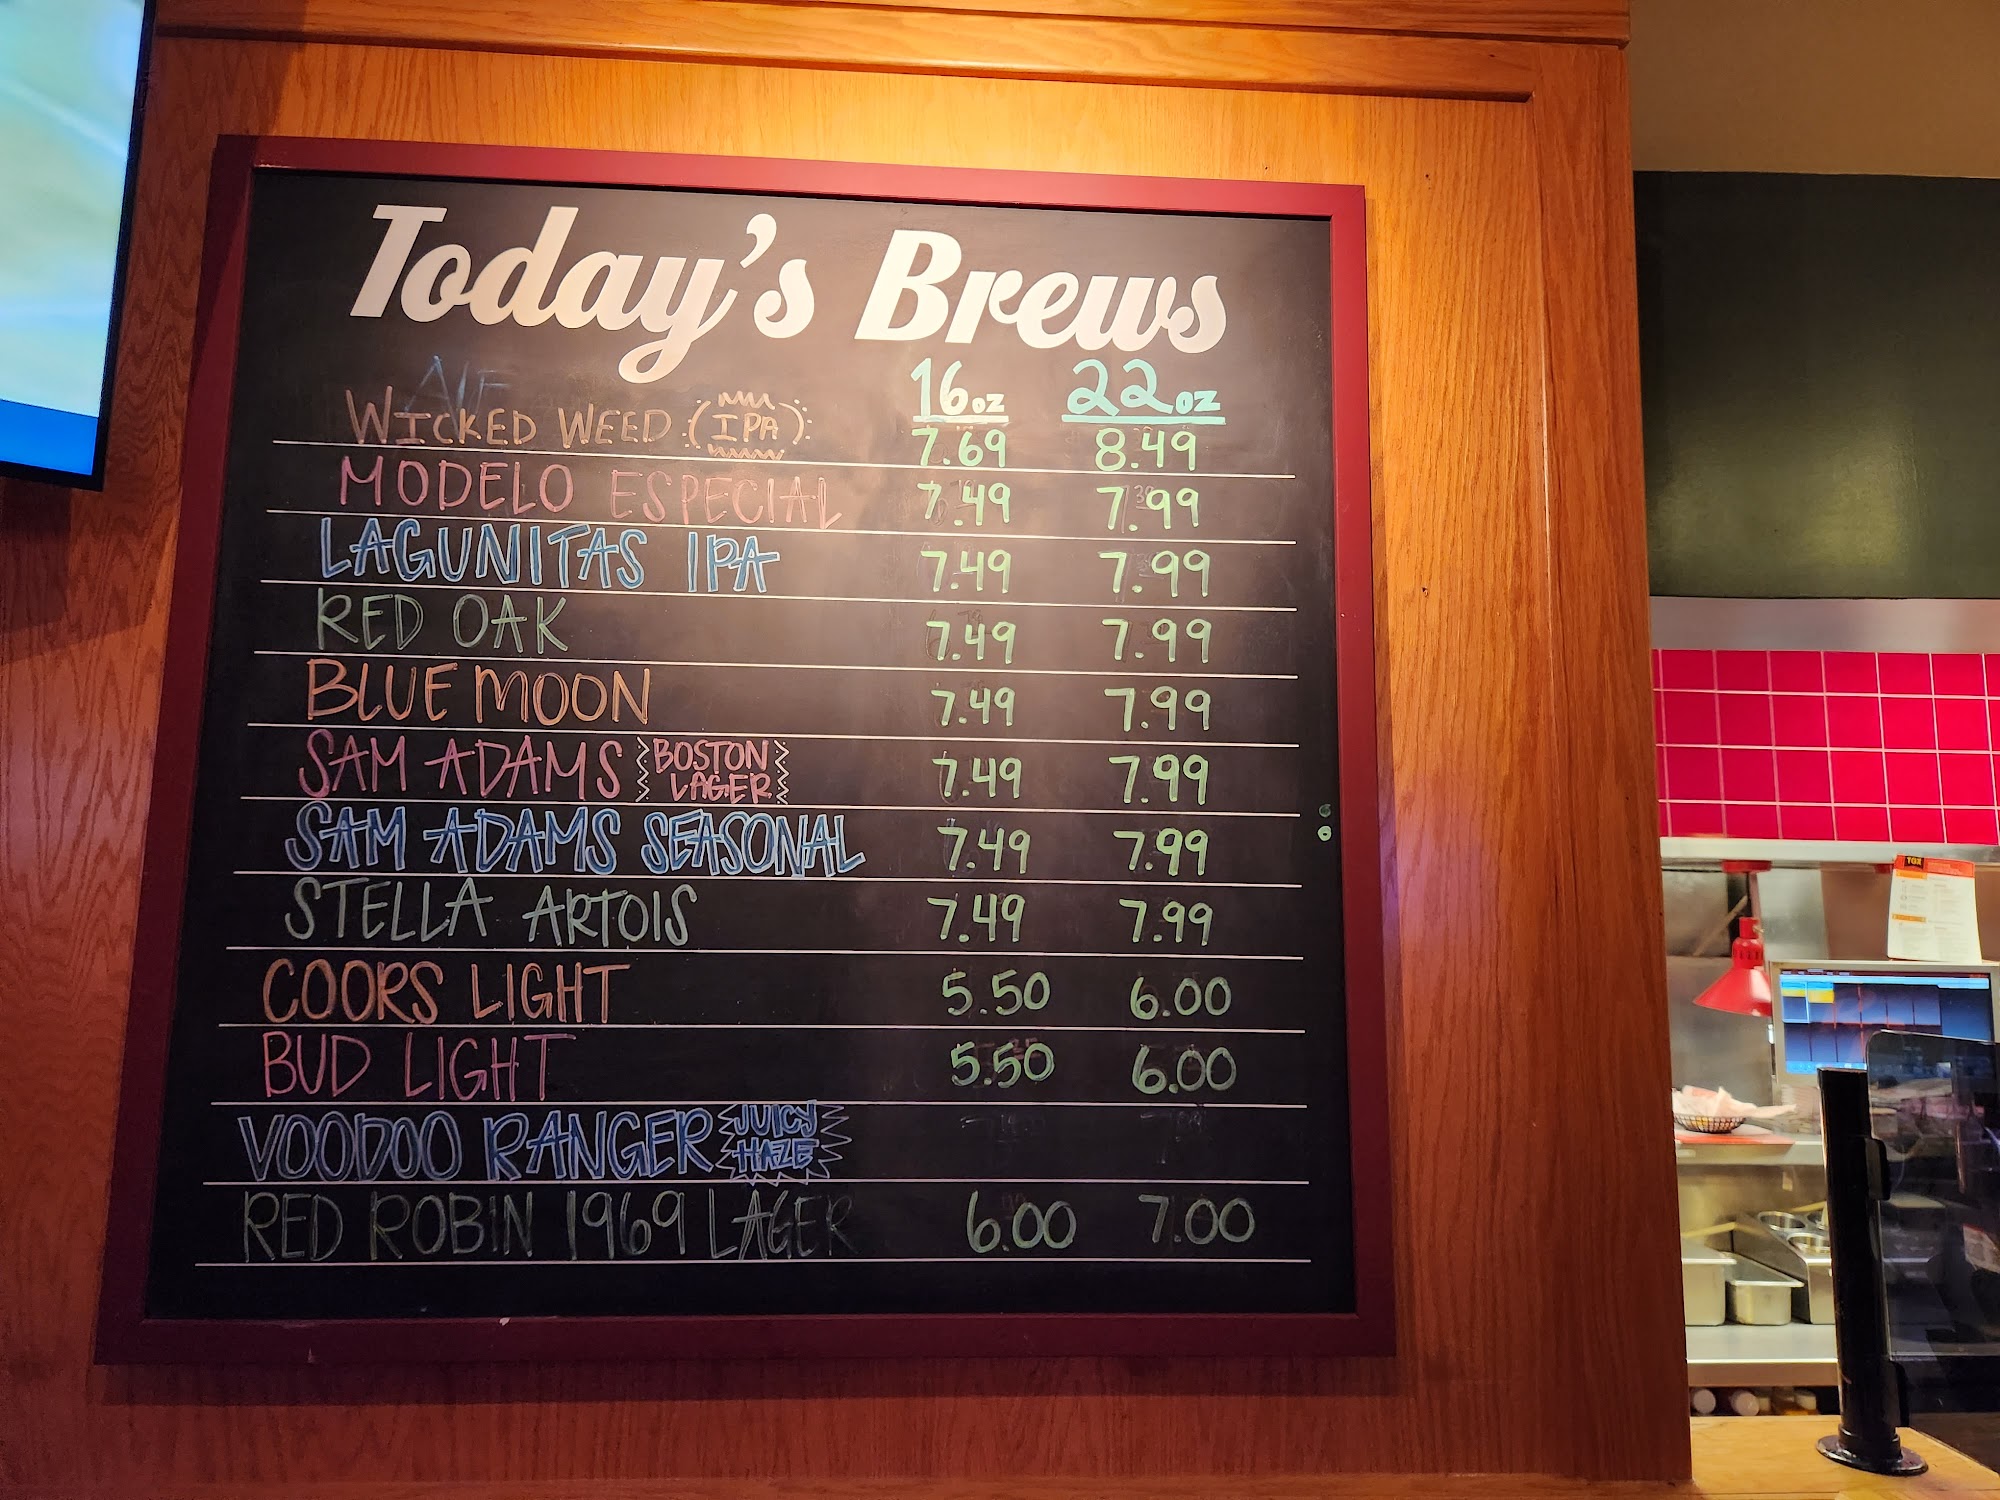 Today's Brews
16oz 22oz
WICKED WEED (IPA) 7.69 8.49
MODELO ESPECIAL 7.49 7.99
LAGUNITAS IPA 7.49 7.99
RED OAK 7.49 7.99
BLUE MOON 7.49 7.99
SAM ADAMS BOSTON LAGER 7.49 7.99
SAM ADAMS SEASONAL 7.49 7.99
STELLA ARTOIS 7.49 7.99
COORS LIGHT 5.50 6.00
BUD LIGHT 5.50 6.00
VOODOO RANGER JUICY HAZE
RED ROBIN 1969 LAGER 6.00 7.00